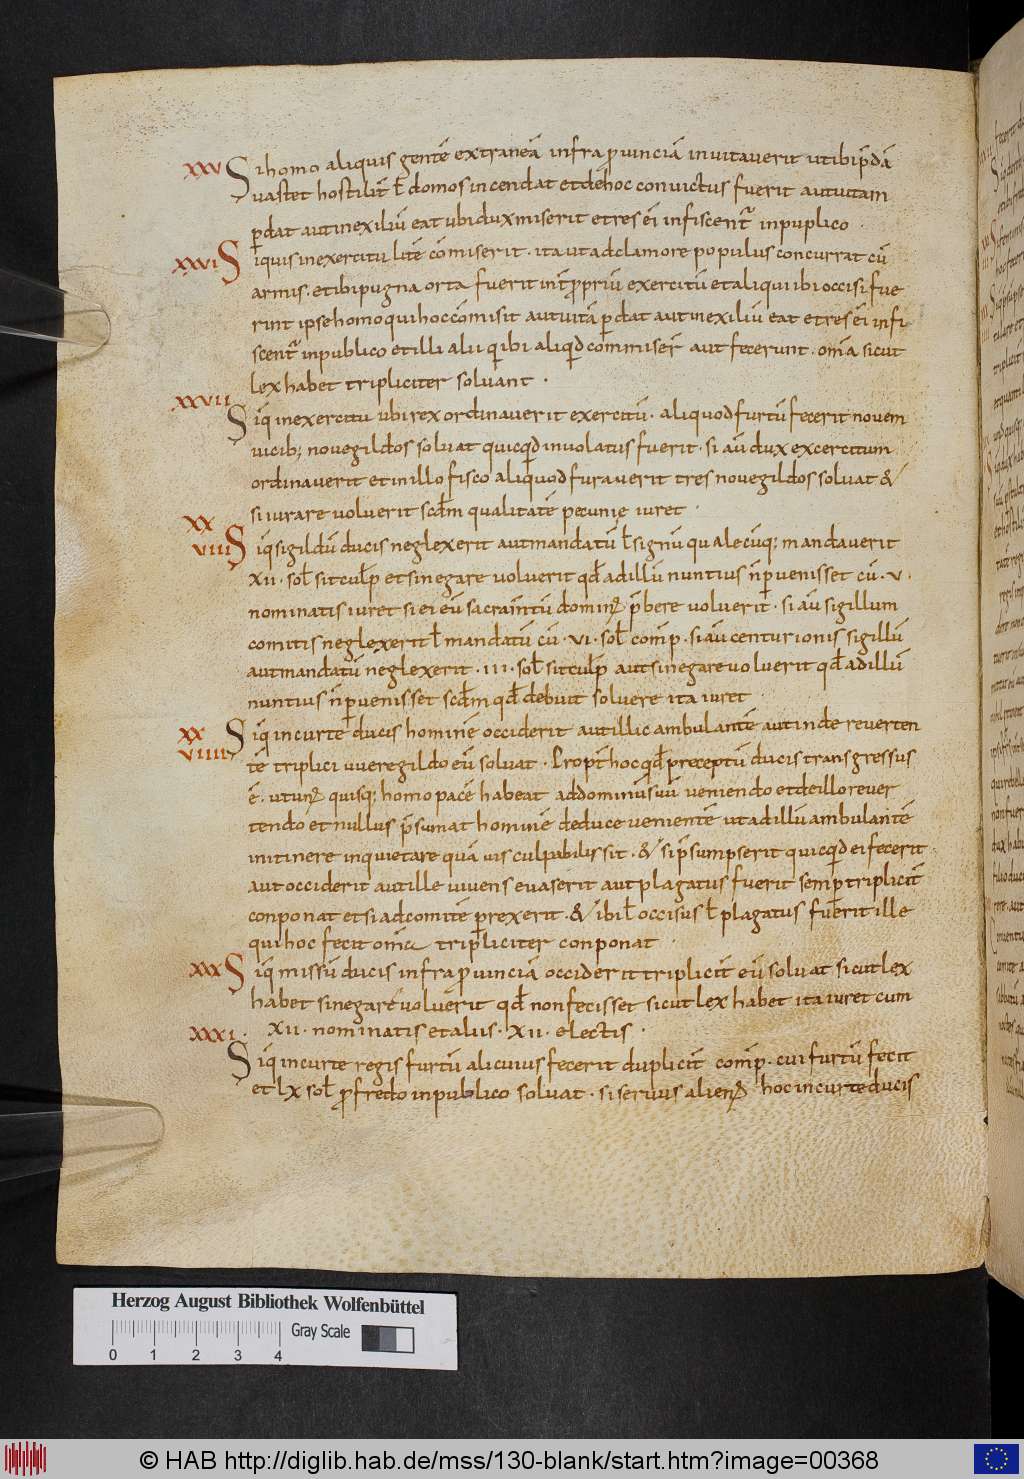 XXV Si homo aliquis gentē extraneā infra ꝓvinciā invitaverit ut ibi p̄dā
vastet hostilit̄ ł domos incendat et dehoc convictus fuerit aut vitam
ꝑdat aut in exiliū eat ubi dux miserit et res ei infiscent᷑ in puplico
XXVI Si quis in exercitu litē cōmiserit · ita ut ad clamore populus concurrat cū
armis · et ibi pugna orta fuerit int̄ ꝓpriū exercitū et aliqui ibi occisi fue
rint ipse homo qui hoc cōmisit aut vitā ꝑdat aut in exiliū eat et res ei infi
scent᷑ in publico et illi alii q ibi aliqd commiser̄ aut fecerunt · om̄a sicut
lex habet tripliciter solvant ·
XXVII
Siq̄ in exercitu ubi rex ordinaverit exercitū · aliquod furtū fecerit novem
vicib; novegildos solvat quicqd involatus fuerit · si au̅ dux excercitum
ordinaverit et in illo fisco aliquod furaverit tres novegildos solvat &
si iurare voluerit scd̄m qualitatē pecunię iuret ·
XX
VIIII Siq̄ sigildū ducis neglexerit aut mandatū ł signū qualecūq; mandaverit
XII · soł sit culp̄ et si negare voluerit qd̄ ad illū nuntius n̄ ꝑvenisset cū · V ·
nominatis iuret si ei eū sacram̄tū domin᷒ p̄bere voluerit · si au̅ sigillum
comitis neglexerit ł mandatū cū · VI · soł comp̄ · si au̅ centurionis sigillū
aut mandatū neglexerit · III · soł sit culp̄ aut si negare voluerit qd̄ ad illū
nuntius n̄ ꝑvenisset scd̄m qd̄ debuit solvere ita iuret
XX Siq̄ in curte ducis hominē occiderit aut illic ambulantē aut inde reverten
VIIII tē triplici vveregildo eū solvat · Propt̄ hoc qd̄ preceptū ducis transgressus
ē · ut un᷒ quisq; homo pacē habeat ad dominū suū veniendo et de illo rever
tendo et nullus p̄sumat hominē de duce venientē ut ad illū ambulantē
in itinere inquietare quāvis culpabilis sit · & si p̄sumpserit quicqd ei fecerit
aut occiderit aut ille vivens evaserit aut plagatus fuerit semp̄ triplicit̄
conponat et si ad comitē prexerit · & ibi ł occisus ł plagatus fuerit ille
qui hoc fecit om̄ia tripliciter conponat ·
XXX Siq̄ missū ducis infra ꝓvinciā occiderit triplicit̄ eū solvat sicut lex
habet si negare voluerit qd̄ non fecisset sicut lex habet ita iuret cum
XXXI · XII · nominatis et alus · XII · electis ·
Siq̄ in curte regis furtū alicuius fecerit duplicit̄ comp̄ · cui furtū fecit
et LX soł ꝓ fredo in publico solvat · si servus alien᷒ hoc in curte ducis
Herzog August Bibliothek Wolfenbüttel
Gray Scale
0 1 2 3 4
© HAB http://diglib.hab.de/mss/130-blank/start.htm?image=00368